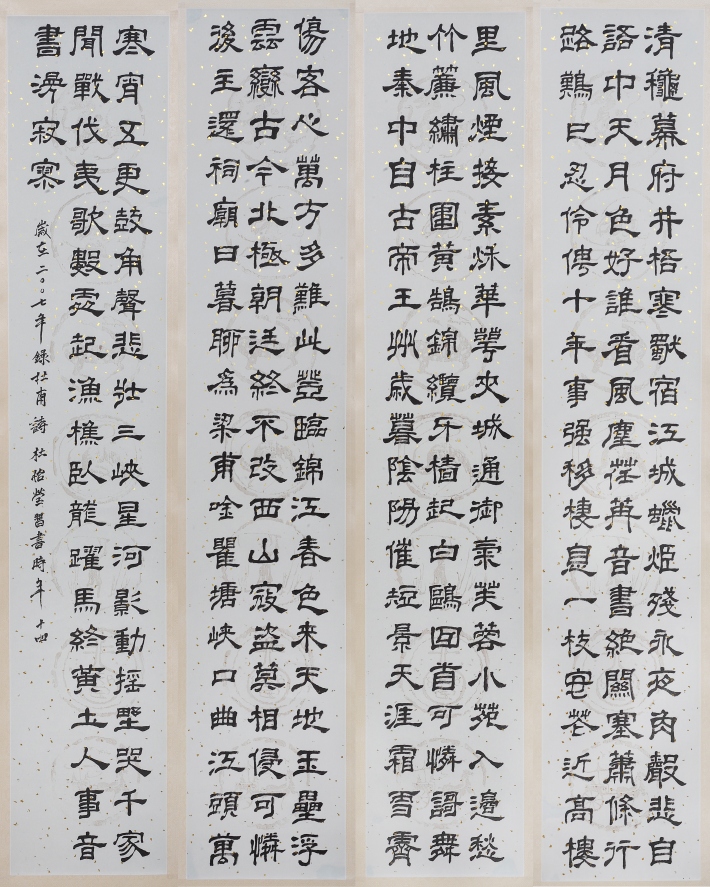 清穐幕府井梧寒獨宿江城蠟炬殘永夜角聲悲自
語中天月色好誰看風塵荏苒音書絕關塞蕭條行
路難已忍伶俜十年事强移棲息一枝安花近高樓
里風煙接素秋華萼夾城通御氣芙蓉小苑入邊愁
竹簾繡柱圍黃鵠錦纜牙檣起白鷗回首可憐謌舞
地秦中自古帝王州歲暮陰陽催短景天涯霜雪霽
傷客心萬方多難此登臨錦江春色來天地玉壘浮
雲變古今北極朝廷終不改西山寇盜莫相侵可憐
後主還祠廟日暮聊為梁甫吟瞿塘峽口曲江頭萬
寒宵五更鼓角聲悲壯三峽星河影動搖野哭千家
聞戰伐夷歌數處起漁樵臥龍躍馬終黃土人事音
書寂寥
歲在二〇〇七年錄杜甫詩杜瑩習書時年十四